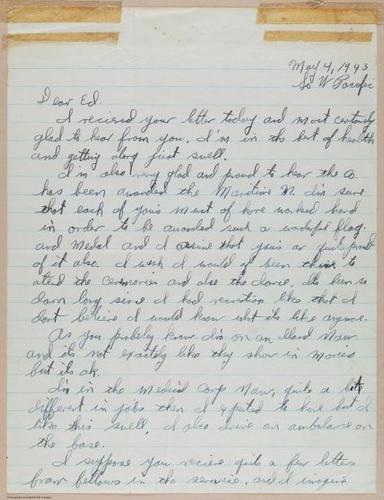 May 4, 1943
So W Pacific
Dear Ed.
I recieved your letter today and most certainly
glad to hear from you. I'm in the best of health
and getting along just swell.
I'm also very glad and proud to hear the Co.
has been awarded the Maritime M. I'm sure
that each of you's must of have worked hard
in order to be awarded such a wonderful flag
and Medal and I asume that you's are quite proud
of it also. I wish I would of been there to
atend the cermonies and also the dance. Its been so
darn long since I had recreation like that I
dont believe I would know what its like anymore.
As you probely know I'm on an Island Now
and its not exactely like they show in Movies
but its ok.
I'm in the Medical Corp Now, quite a bit
different in jobs then I expected to have but I
like this swell. I also drive an ambulance on
the base.
I suppose you recieve quite a few letters
from fellows in the service, and I imagine